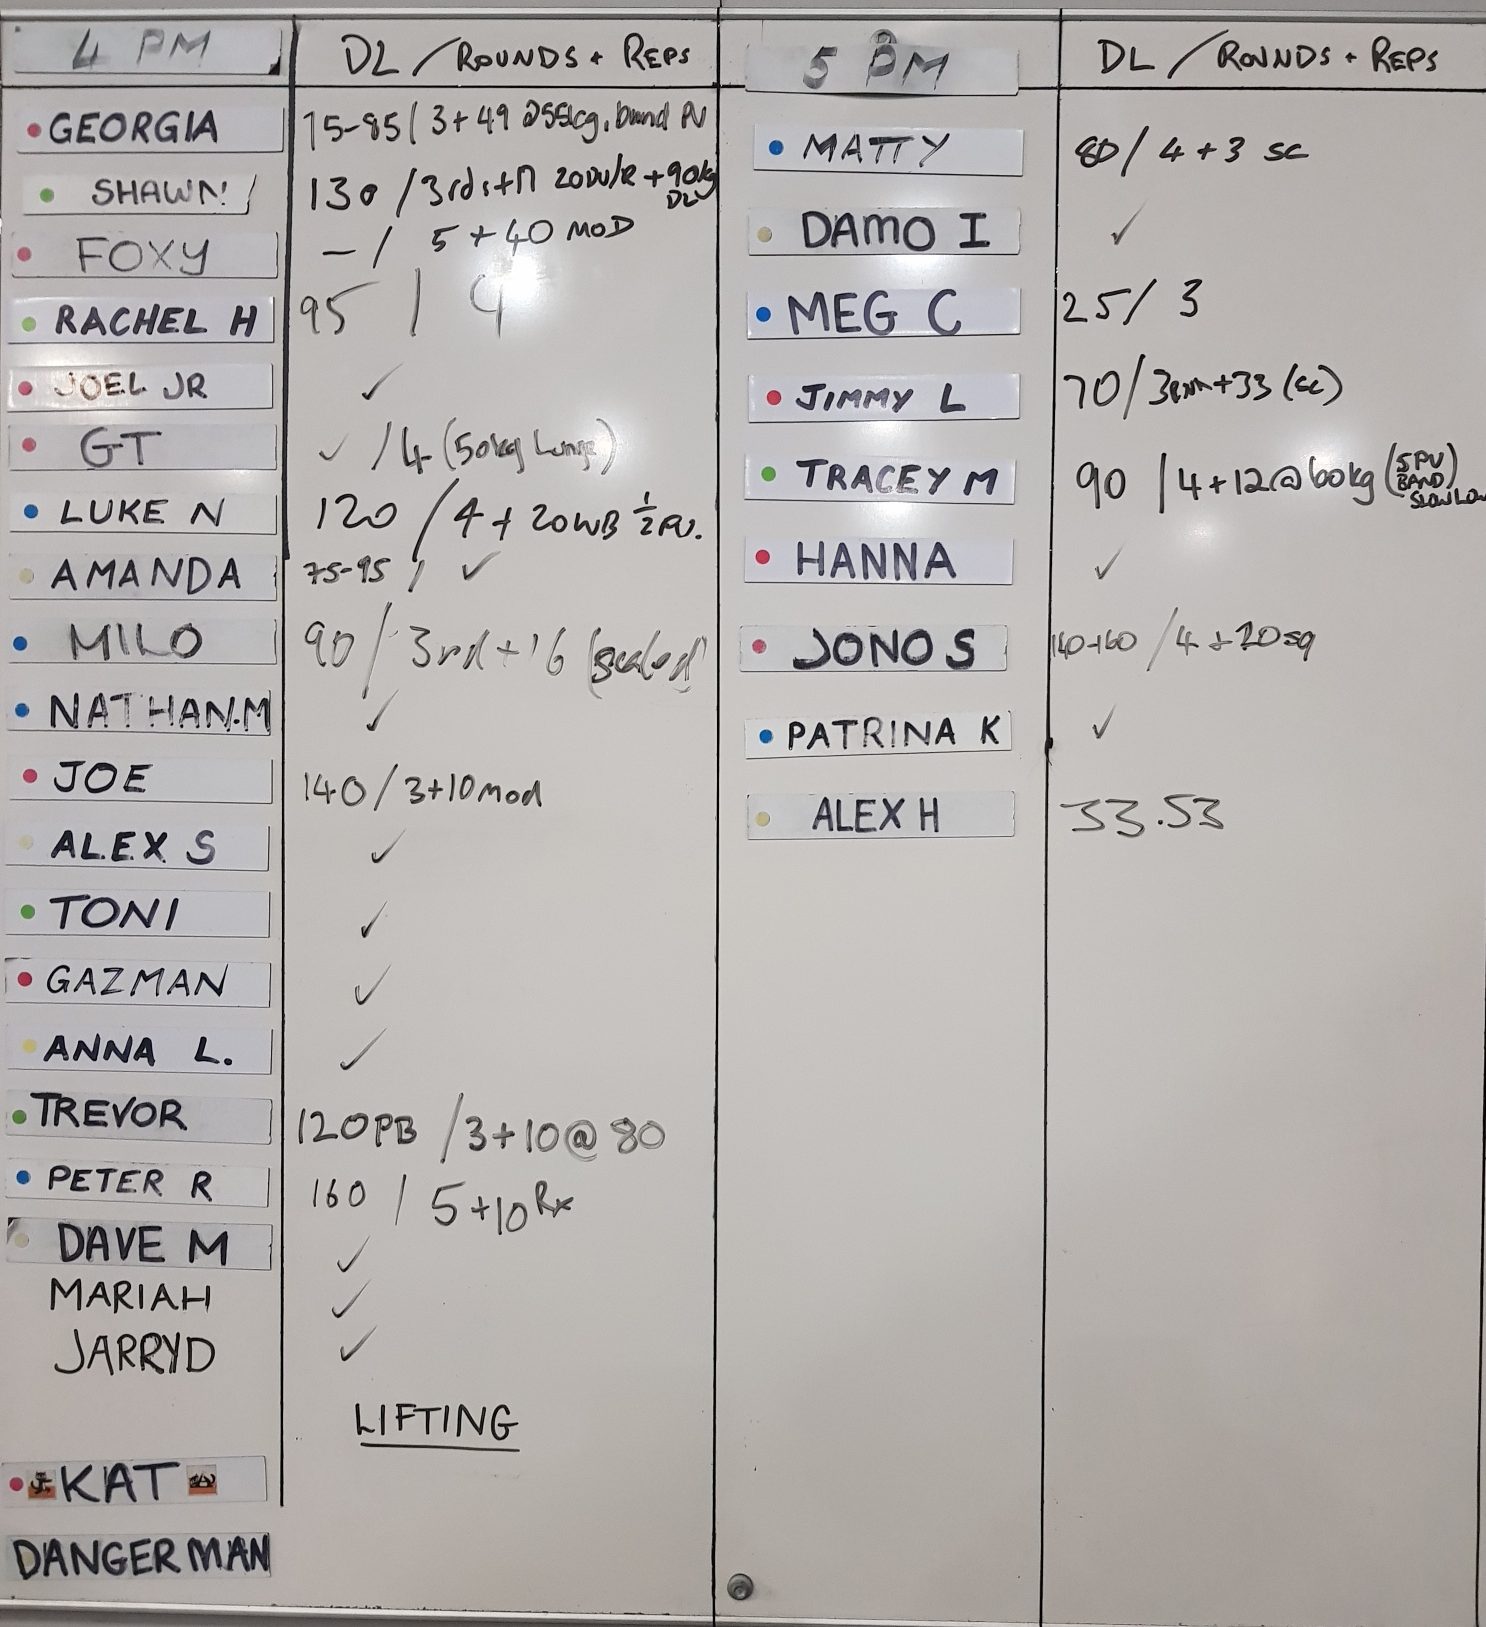 4 PM DL / ROUNDS + REPS
GEORGIA 75-85 / 3+49 @55kg, band PU
SHAWN 130 / 3rds+17 20DU/R +90kg DL
FOXY - / 5 + 40 MOD
RACHEL H 95 / 4
JOEL JR ✓
GT ✓ / 4 (50kg Lunge)
LUKE N 120 / 4 + 20WB ½ PU.
AMANDA 75-95 / ✓
MILO 90 / 3rd + 16 (scaled)
NATHAN.M ✓
JOE 140 / 3+10 mod
ALEX S ✓
TONI ✓
GAZMAN ✓
ANNA L. ✓
TREVOR 120PB / 3+10 @ 80
PETER R 160 / 5+10 Rx
DAVE M ✓
MARIAH ✓
JARRYD ✓
LIFTING
KAT
DANGERMAN
5 PM DL / ROUNDS + REPS
MATTY 80 / 4 + 3 SC
DAMO I ✓
MEG C 25 / 3
JIMMY L 70 / 3 +33 (SC)
TRACEY M 90 / 4+12 @ 60kg (5PU BAND) SLOW LOW
HANNA ✓
JONO S 140-160 / 4 + 20sq
PATRINA K ✓
ALEX H 33.53